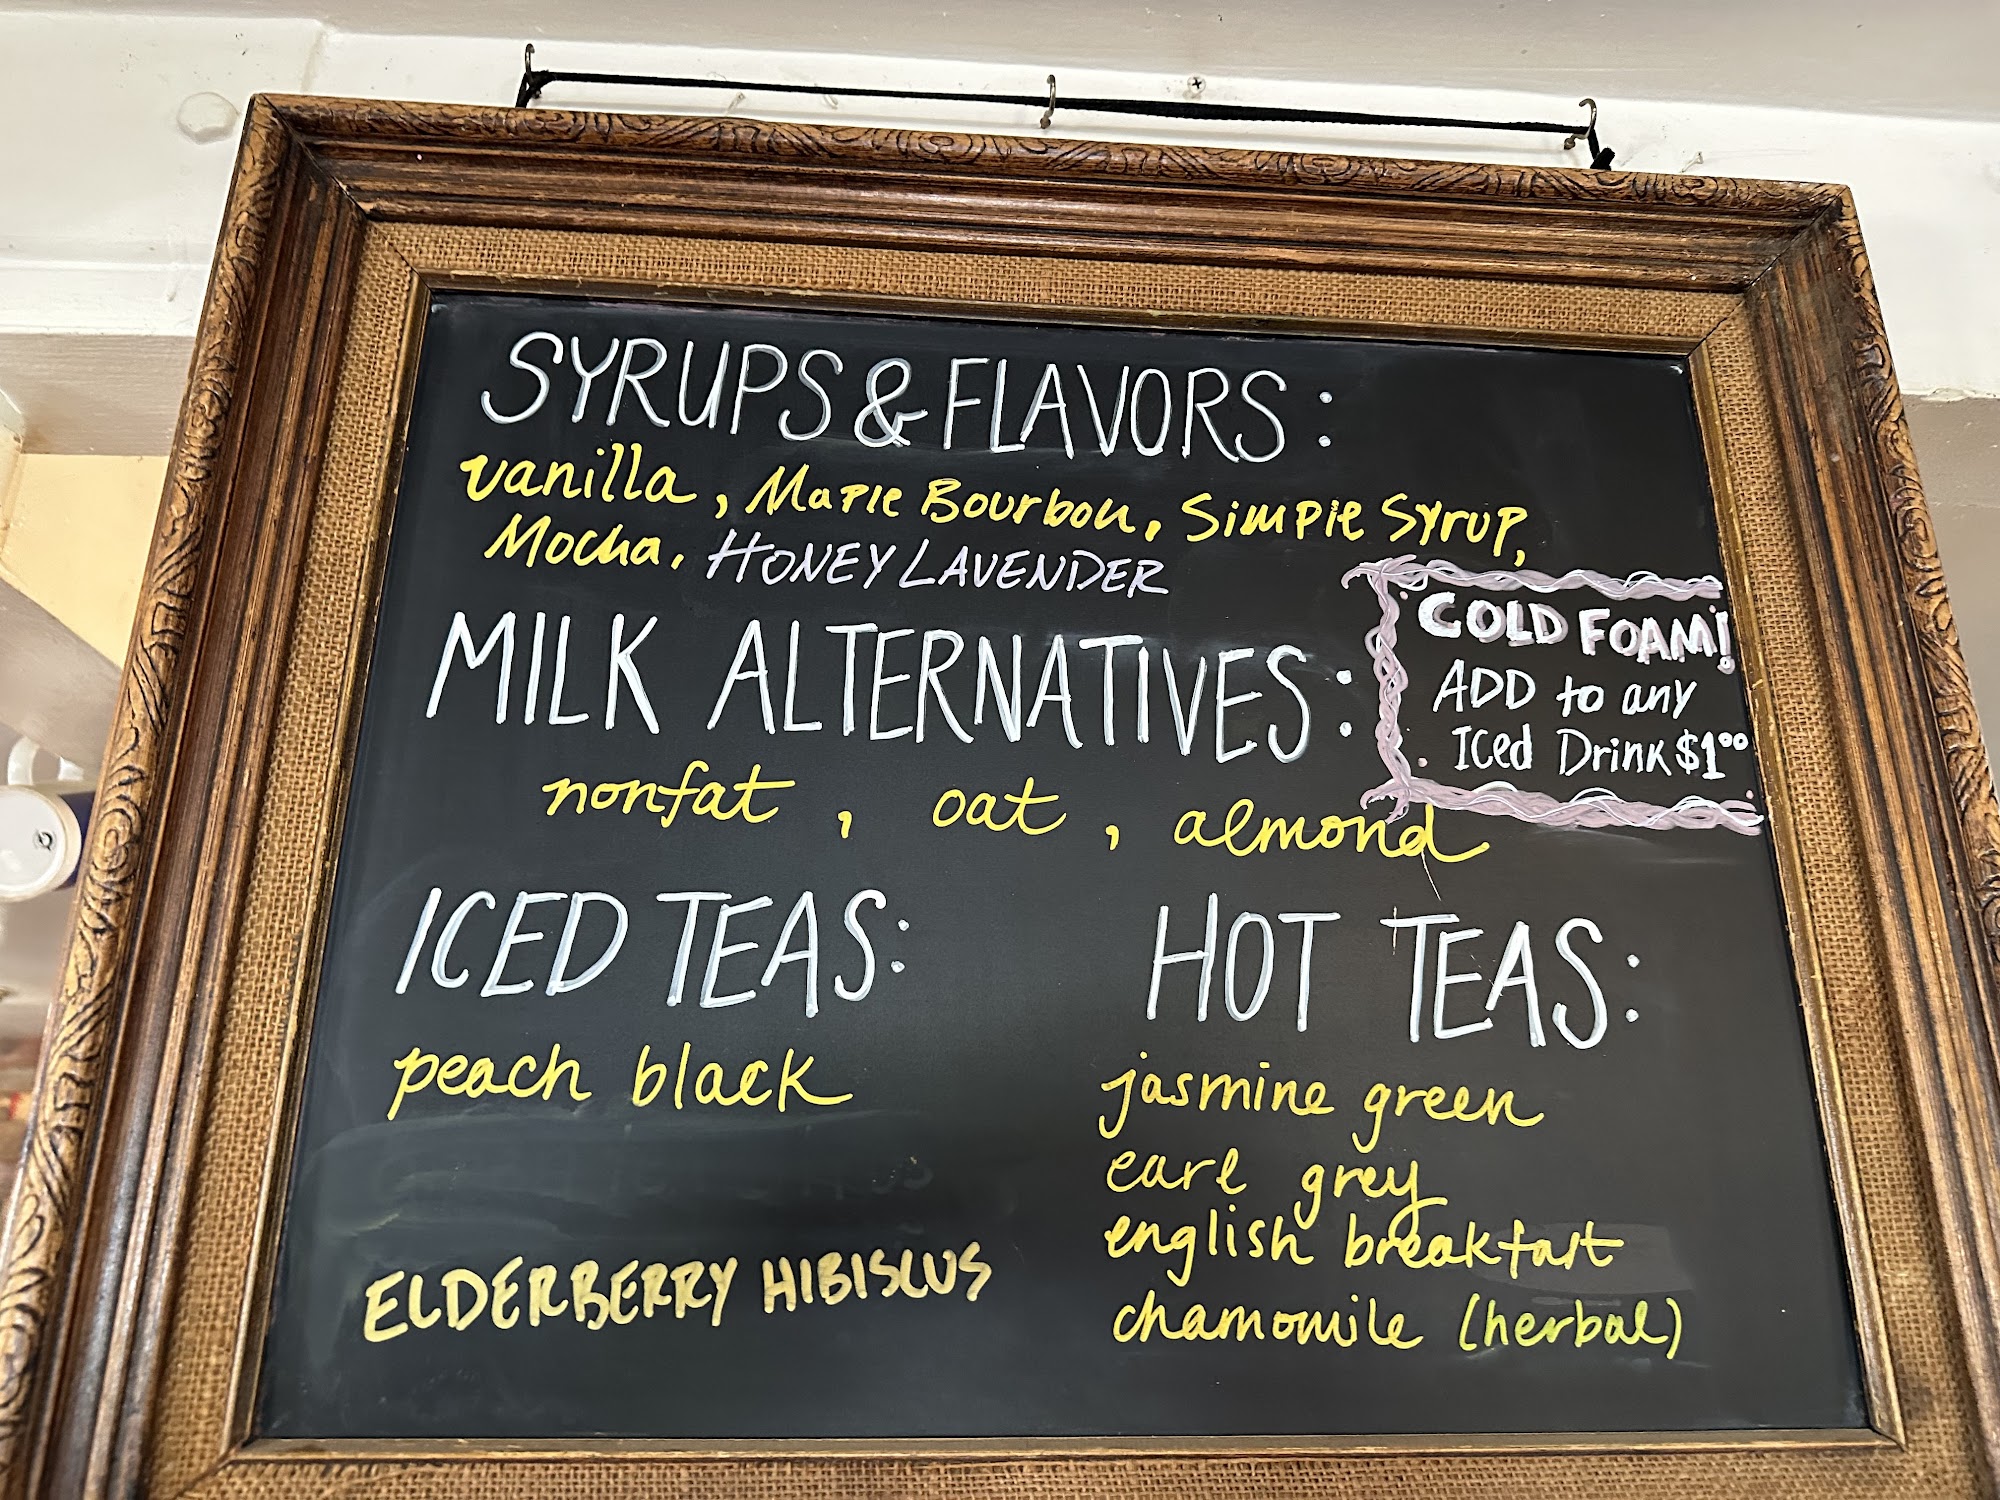 SYRUPS & FLAVORS:
vanilla, Maple Bourbon, Simple Syrup,
Mocha, HONEY LAVENDER
MILK ALTERNATIVES:
nonfat, oat, almond
COLD FOAM!
ADD to any
Iced Drink $1.00
ICED TEAS:
peach black
ELDERBERRY HIBISCUS
HOT TEAS:
jasmine green
earl grey
english breakfast
chamomile (herbal)